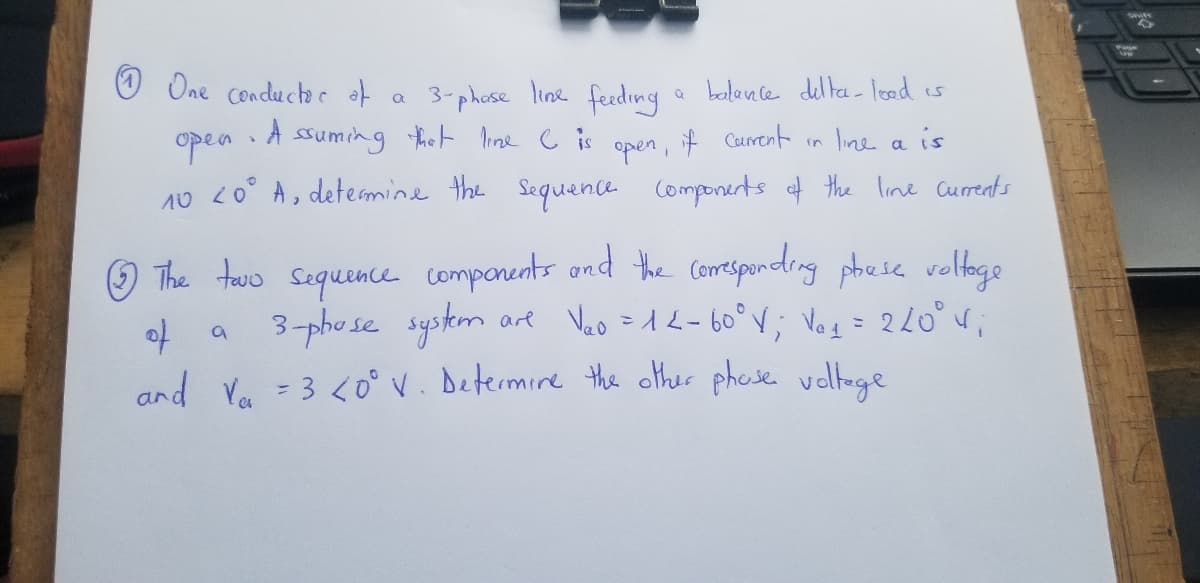 ① One conductor of a 3-phase line feeding a balance delta-load is
open. Assuming that line C is open, if current in line a is
10 <0° A, determine the sequence components of the line currents
② The two sequence components and the corresponding phase voltage
of a 3-phase system are Va0 = 1 ∠-60° V; Va1 = 2∠0° V;
and Va = 3 <0° V. Determine the other phase voltage
Shift
Page
Up